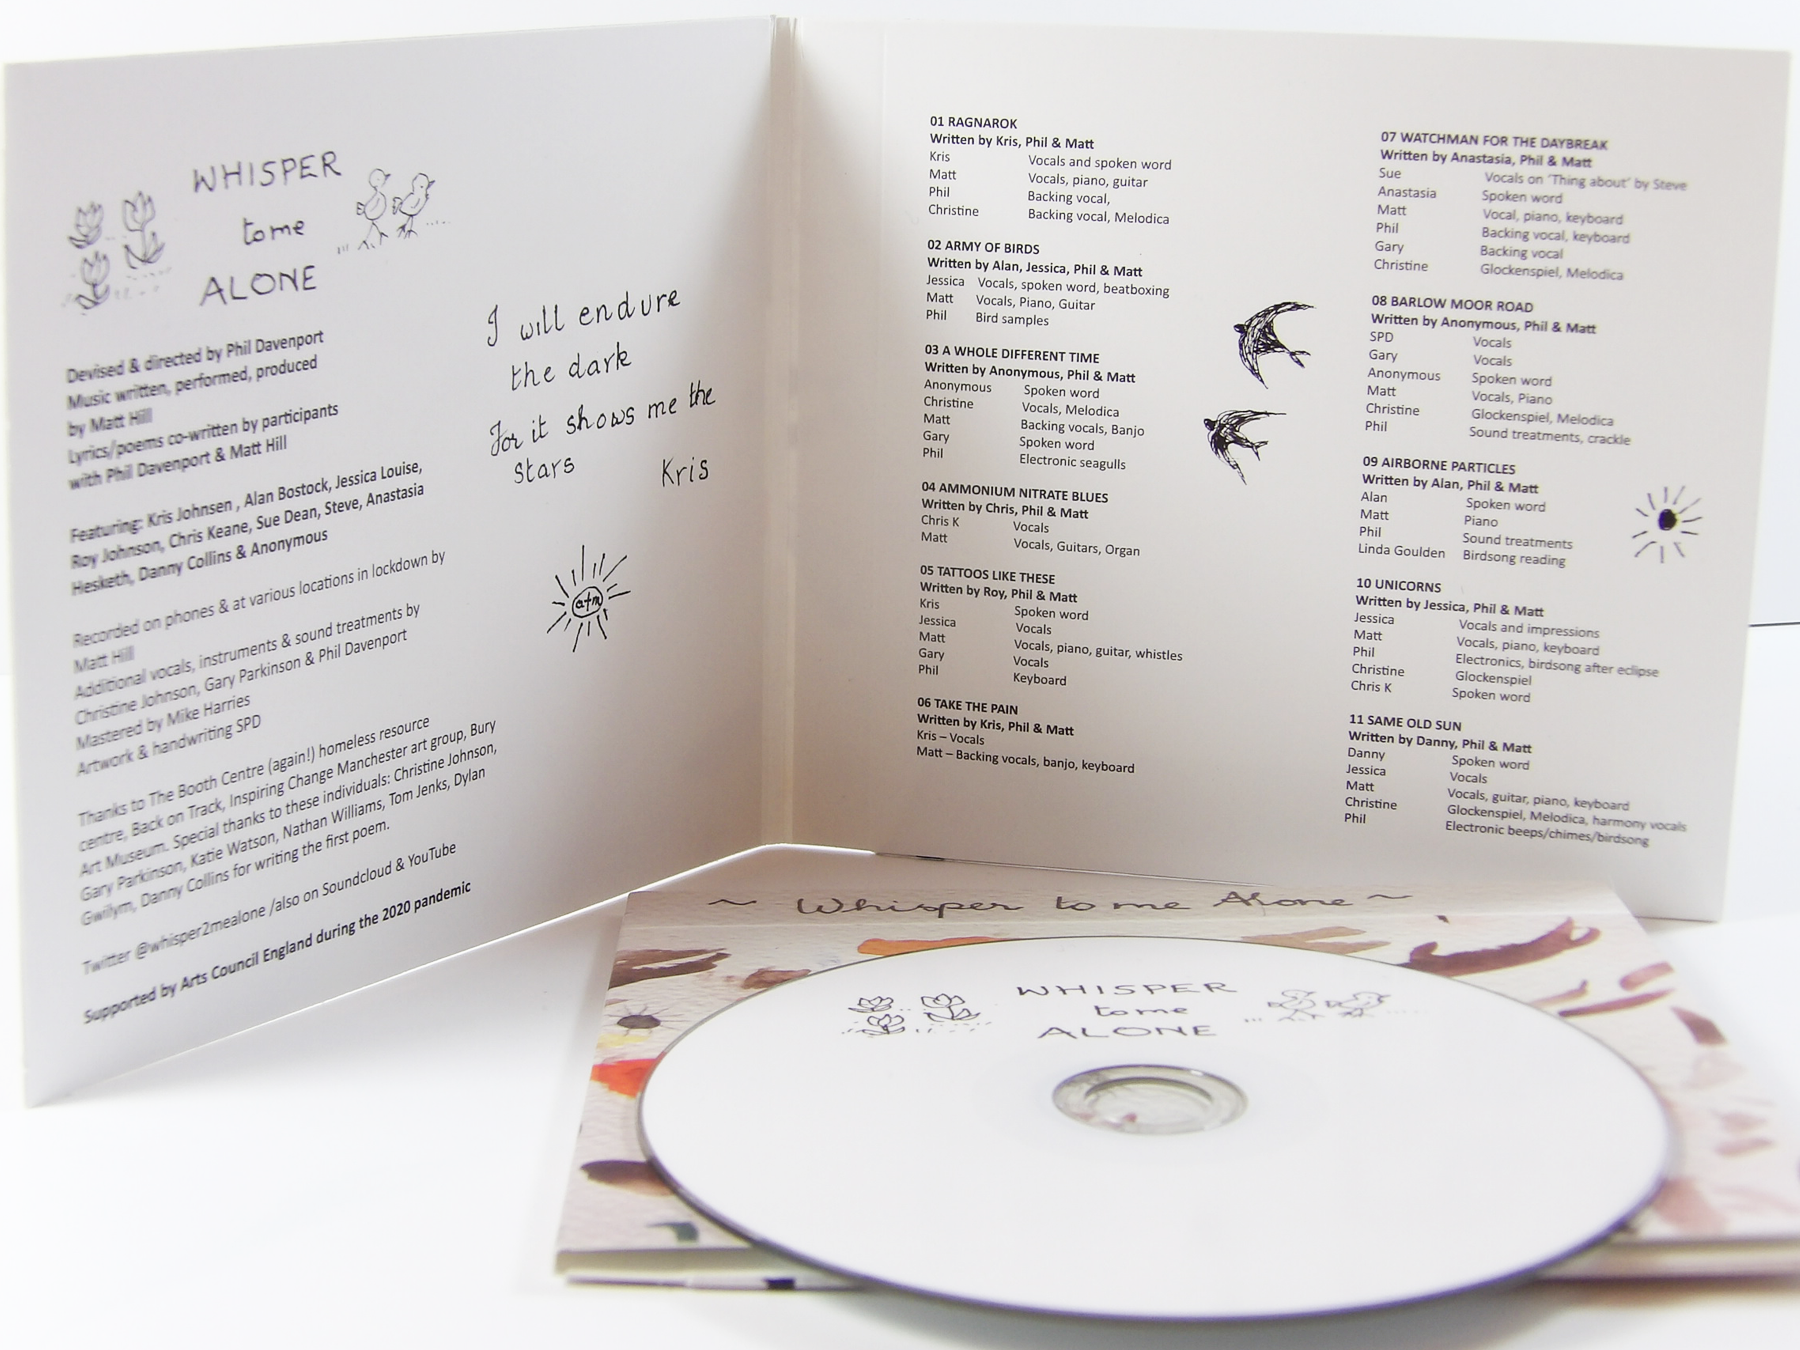 WHISPER
to me
ALONE
Devised & directed by Phil Davenport
Music written, performed, produced
by Matt Hill
Lyrics/poems co-written by participants
with Phil Davenport & Matt Hill
Featuring: Kris Johnsen , Alan Bostock, Jessica Louise,
Roy Johnson, Chris Keane, Sue Dean, Steve, Anastasia
Hesketh, Danny Collins & Anonymous
Recorded on phones & at various locations in lockdown by
Matt Hill
Additional vocals, instruments & sound treatments by
Christine Johnson, Gary Parkinson & Phil Davenport
Mastered by Mike Harries
Artwork & handwriting SPD
Thanks to The Booth Centre (again!) homeless resource
centre, Back on Track, Inspiring Change Manchester art group, Bury
Art Museum. Special thanks to these individuals: Christine Johnson,
Gary Parkinson, Katie Watson, Nathan Williams, Tom Jenks, Dylan
Gwilym, Danny Collins for writing the first poem.
Twitter @whisper2mealone /also on Soundcloud & YouTube
Supported by Arts Council England during the 2020 pandemic
I will endure
the dark
For it shows me the
stars
Kris
01 RAGNAROK
Written by Kris, Phil & Matt
Kris Vocals and spoken word
Matt Vocals, piano, guitar
Phil Backing vocal,
Christine Backing vocal, Melodica
02 ARMY OF BIRDS
Written by Alan, Jessica, Phil & Matt
Jessica Vocals, spoken word, beatboxing
Matt Vocals, Piano, Guitar
Phil Bird samples
03 A WHOLE DIFFERENT TIME
Written by Anonymous, Phil & Matt
Anonymous Spoken word
Christine Vocals, Melodica
Matt Backing vocals, Banjo
Gary Spoken word
Phil Electronic seagulls
04 AMMONIUM NITRATE BLUES
Written by Chris, Phil & Matt
Chris K Vocals
Matt Vocals, Guitars, Organ
05 TATTOOS LIKE THESE
Written by Roy, Phil & Matt
Kris Spoken word
Jessica Vocals
Matt Vocals, piano, guitar, whistles
Gary Vocals
Phil Keyboard
06 TAKE THE PAIN
Written by Kris, Phil & Matt
Kris – Vocals
Matt – Backing vocals, banjo, keyboard
07 WATCHMAN FOR THE DAYBREAK
Written by Anastasia, Phil & Matt
Sue Vocals on ‘Thing about’ by Steve
Anastasia Spoken word
Matt Vocal, piano, keyboard
Phil Backing vocal, keyboard
Gary Backing vocal
Christine Glockenspiel, Melodica
08 BARLOW MOOR ROAD
Written by Anonymous, Phil & Matt
SPD Vocals
Gary Vocals
Anonymous Spoken word
Matt Vocals, Piano
Christine Glockenspiel, Melodica
Phil Sound treatments, crackle
09 AIRBORNE PARTICLES
Written by Alan, Phil & Matt
Alan Spoken word
Matt Piano
Phil Sound treatments
Linda Goulden Birdsong reading
10 UNICORNS
Written by Jessica, Phil & Matt
Jessica Vocals and impressions
Matt Vocals, piano, keyboard
Phil Electronics, birdsong after eclipse
Christine Glockenspiel
Chris K Spoken word
11 SAME OLD SUN
Written by Danny, Phil & Matt
Danny Spoken word
Jessica Vocals
Matt Vocals, guitar, piano, keyboard
Christine Glockenspiel, Melodica, harmony vocals
Phil Electronic beeps/chimes/birdsong
~ Whisper to me Alone ~
WHISPER
to me
ALONE